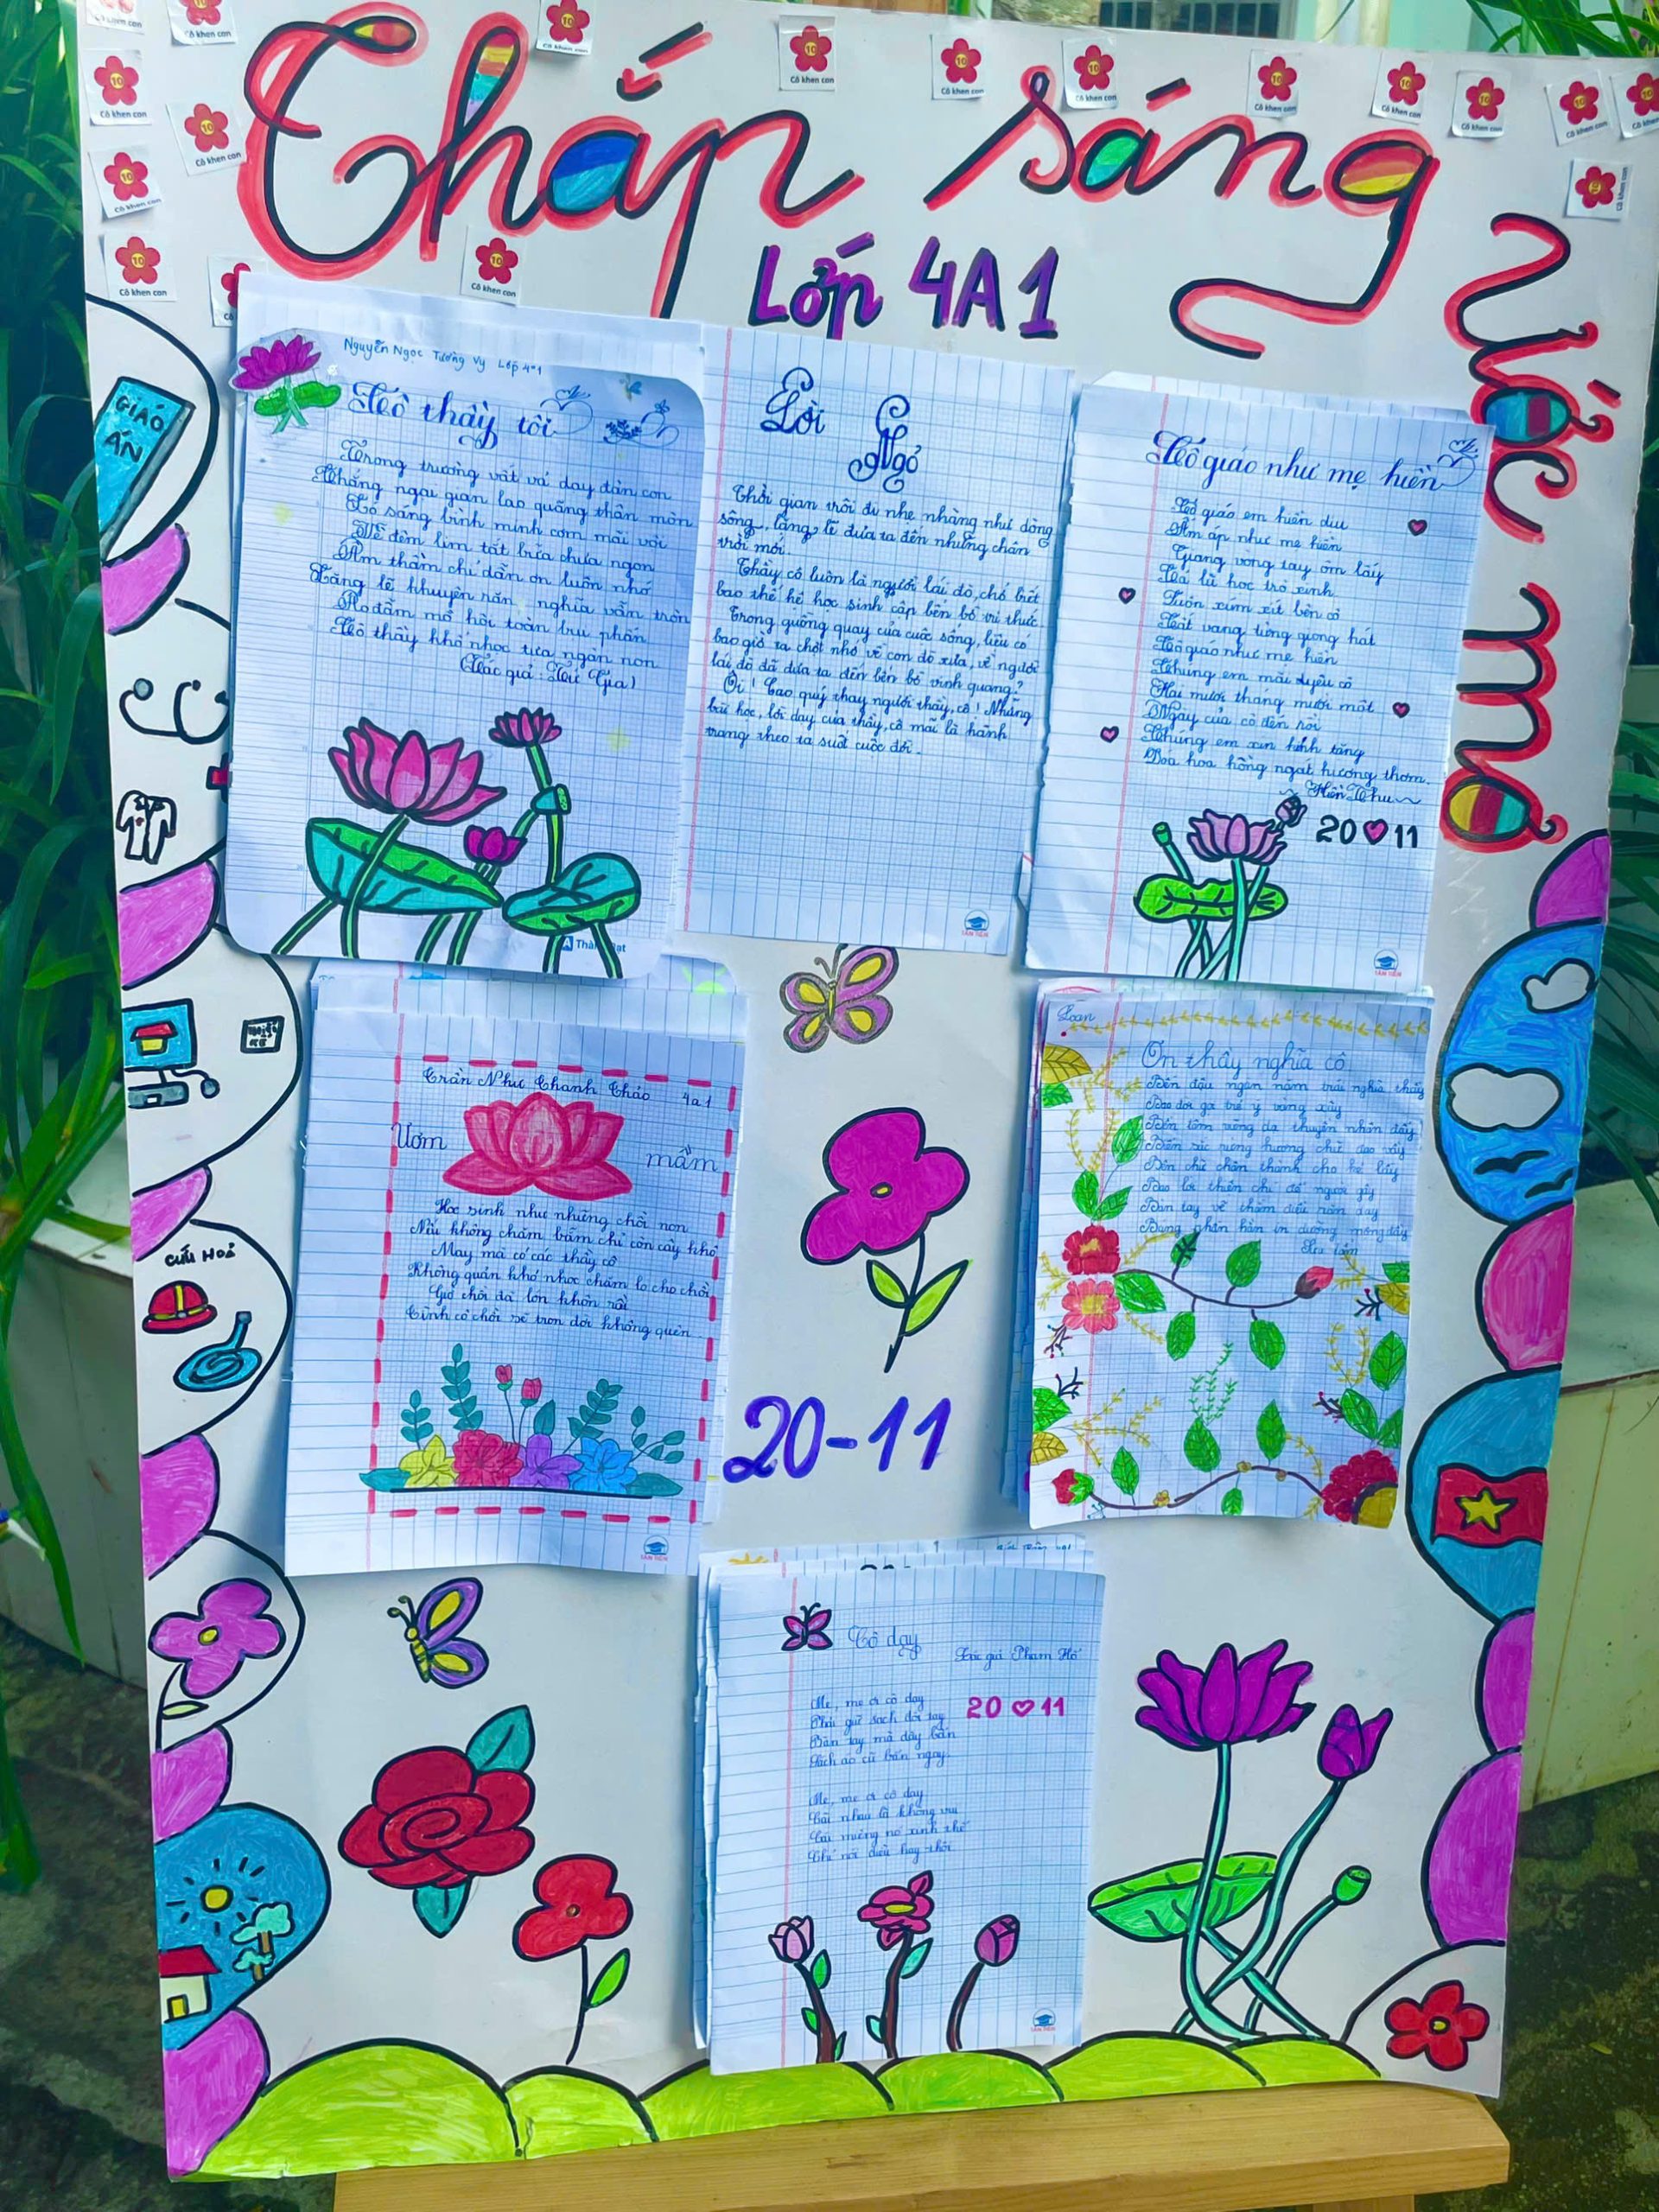 Thắp sáng ước mơ
Lớp 4A1
Cô khen con
10
GIÁO
ÁN
Nguyễn Ngọc Tường Vy Lớp 4A1
Cô thầy tôi
Trong trường vất vả dạy đàn con
Chẳng ngại gian lao quãng thân mòn
Ló sáng bình minh cơm mãi vội
Về đêm lịm tắt bữa chưa ngon
Âm thầm chỉ dẫn ơn luôn nhớ
Lặng lẽ khuyên răn nghĩa vẫn tròn
Rỏ đẫm mồ hôi toàn bụi phấn
Cô thầy khổ nhọc tựa ngàn non
(Tác giả: Tú Gia)
Lời Ngỏ
Thời gian trôi đi nhẹ nhàng như dòng
sông, lặng lẽ đưa ta đến những chân
trời mới.
Thầy cô luôn là người lái đò, chở biết
bao thế hệ học sinh cập bên bờ tri thức.
Trong guồng quay của cuộc sống, liệu có
bao giờ ta chợt nhớ về con đò xưa, về người
lái đò đã đưa ta đến bên bờ vinh quang?
Ôi! Cao quý thay người thầy, cô! Những
bài học, lời dạy của thầy, cô mãi là hành
trang theo ta suốt cuộc đời.
TÂN TIẾN
Cô giáo như mẹ hiền
Cô giáo em hiền dịu
Ấm áp như mẹ hiền
Giang vòng tay ôm lấy
Cả lũ học trò xinh
Luôn xúm xít bên cô
Cất vang tiếng giọng hát
Cô giáo như mẹ hiền
Chúng em mãi yêu cô
Hai mươi tháng mười một
Ngày của cô đến rồi
Chúng em xin kính tặng
Đoá hoa hồng ngát hương thơm.
~ Hiền Thu ~
20 11
TÂN TIẾN
Trần Như Thanh Thảo 4a1
Ươm mầm
Học sinh như những chồi non
Nếu không chăm bẵm chỉ còn cây khô
May mà có các thầy cô
Không quản khó nhọc chăm lo cho chồi
Giờ chồi đã lớn khôn rồi
Tình cô chồi sẽ trọn đời không quên
TÂN TIẾN
20-11
Loan
Ơn thầy nghĩa cô
Bến đậu ngàn năm trải nghĩa thầy
CỨU HOẢ
Cô dạy
Tác giả Phạm Hổ
20 11
Mẹ, mẹ ơi cô dạy
Phải giữ sạch đôi tay
Bàn tay mà dây bẩn
Sách áo cũ bẩn ngay.
Mẹ, mẹ ơi cô dạy
Cãi nhau là không vui
Cái miệng nó xinh thế
Chỉ nói điều hay thôi
TÂN TIẾN